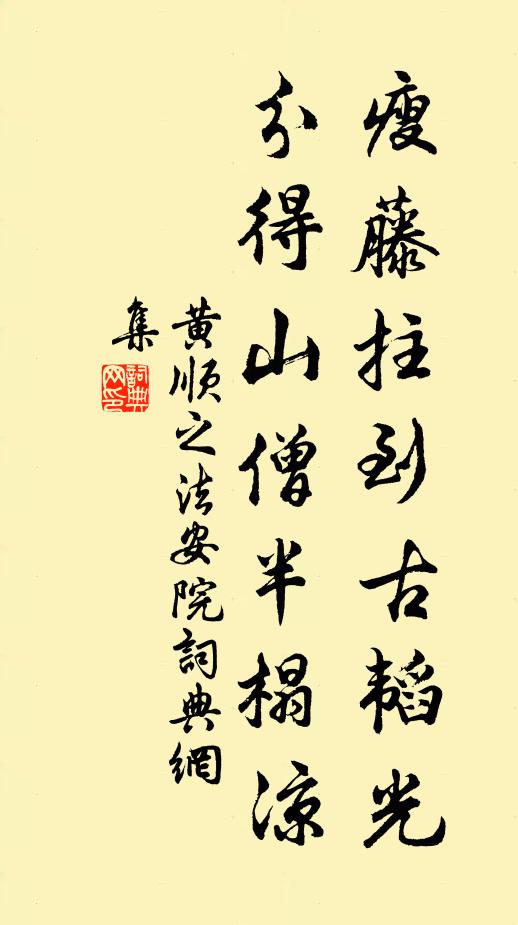 瘦藤拄到古韬光
分得山僧半榻凉
黄顺之法安院詞典網
集
詞典
网印